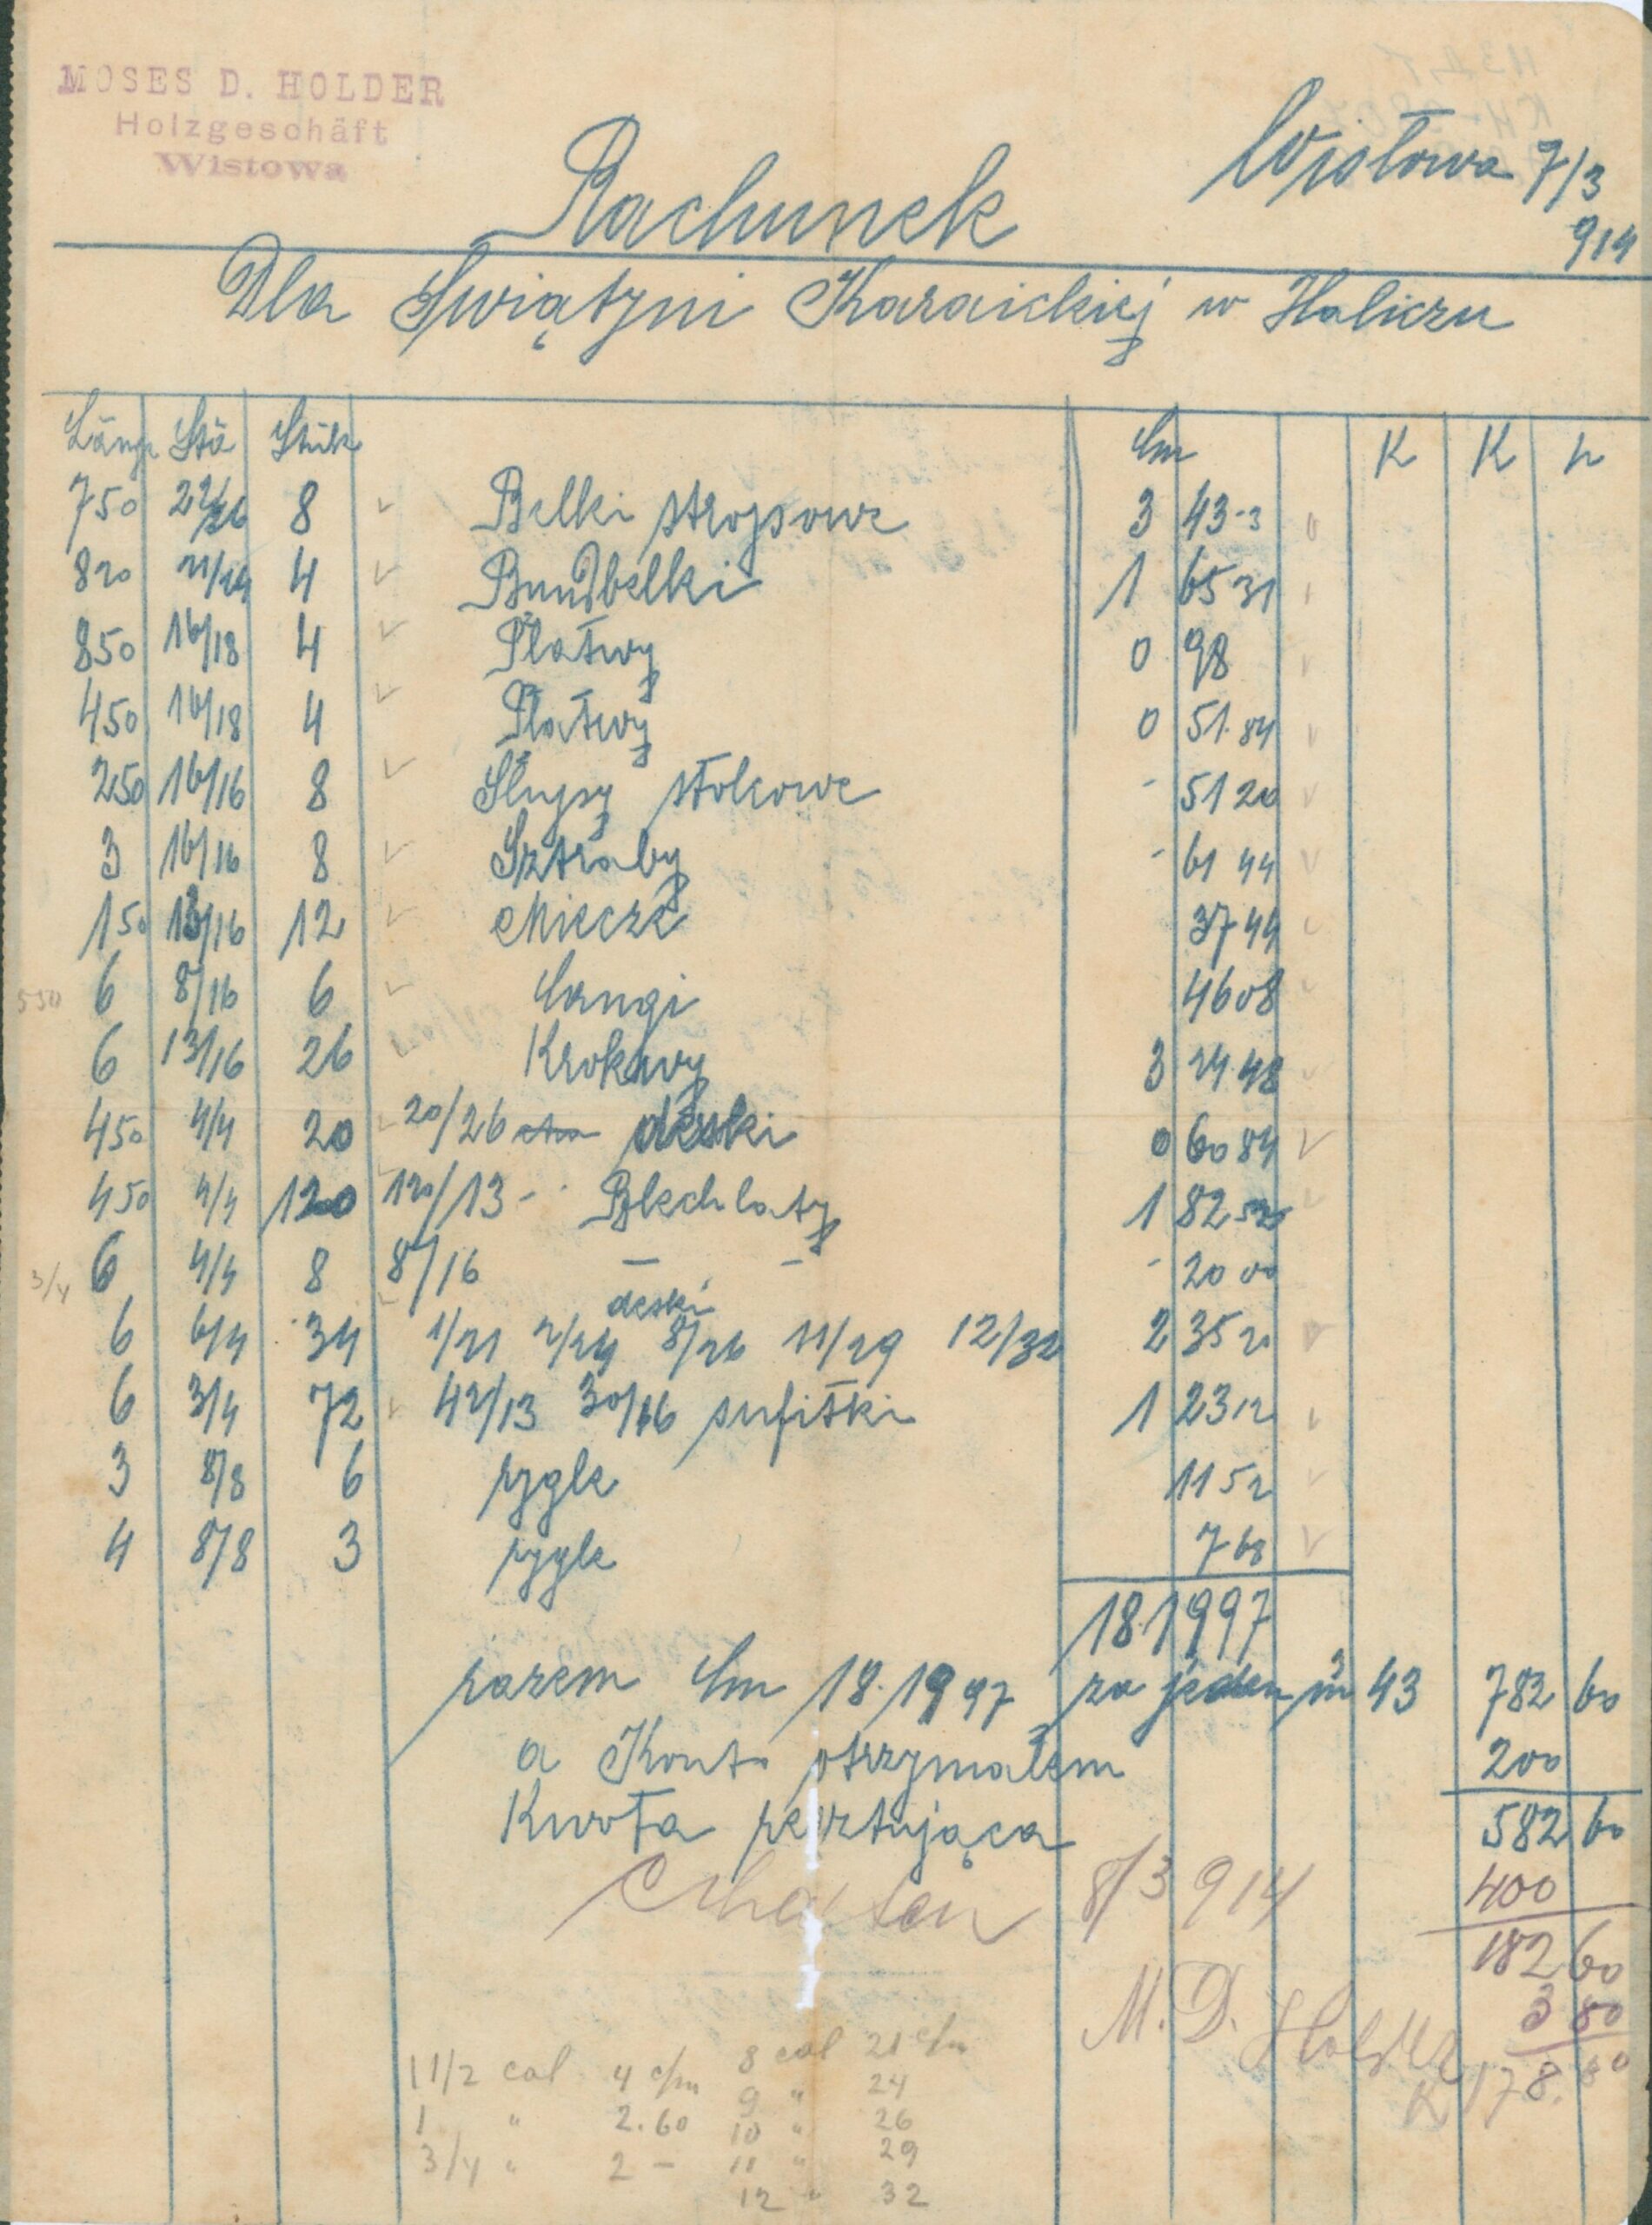 MOSES D. HOLDER
Holzgeschäft
Wistowa
Wistowa 7/3
914
Rachunek
Dla Swiątyni Karaickiej w Haliczu
Läng Stä Stük Cm K K h
750 22/26 8 Belki stropowe 3 43-3
820 21/24 4 Bundbelki 1 65 31
850 16/18 4 Płatwy 0 98
450 16/18 4 Płatwy 0 51.84
250 16/16 8 Słupy stolcowe - 51 20
3 16/16 8 Sztraby - 61 44
150 13/16 12 Miecze 37 44
550 6 8/16 6 Cangi 46 08
6 13/16 26 Krokwy 3 24.48
450 4/4 20 20/26 deski 0 60 84
450 4/4 120 120/13 - Blechlaty 1 82
3/4 6 4/4 8 8/16 - - - 20 00
deski
6 6/4 34 1/21 2/24 8/26 11/29 12/32 2 35 20
6 3/4 72 42/13 30/16 sufitki 1 23 12
3 8/8 6 rygle 11 52
4 8/8 3 rygle 7 68
18.1997
razem Cm 18.1997 za jeden m3 43 782 60
a Konto otrzymałem 200
Kwota resztująca 582 60
8/3 914 400
182 60
M. D. Holder 3 80
K 178.80
1 1/2 cal 4 c/m 8 cal 21 c/m
9 " 24
1 " 2.60 10 " 26
3/4 " 2 - 11 " 29
12 " 32